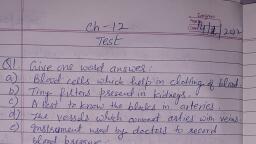 Ch-12
Test
Q1 Give one word answers:
a) Blood cells which help in clotting of blood.
b) Tiny filters present in kidneys.
c) A test to know the blocks in arteries.
d) The vessels which connect arties with veins
e) Instrument used by doctors to record
blood pressure